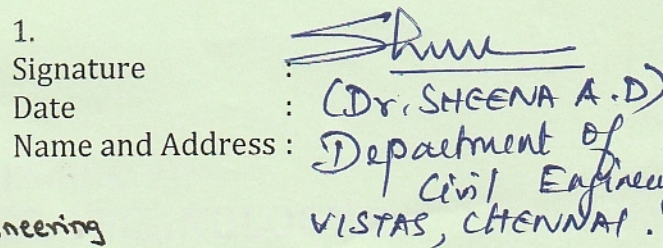 1.
Signature :
Date : (Dr. SHEENA A.D)
Name and Address : Department of
Civil
VISTAS, CHENNAI.